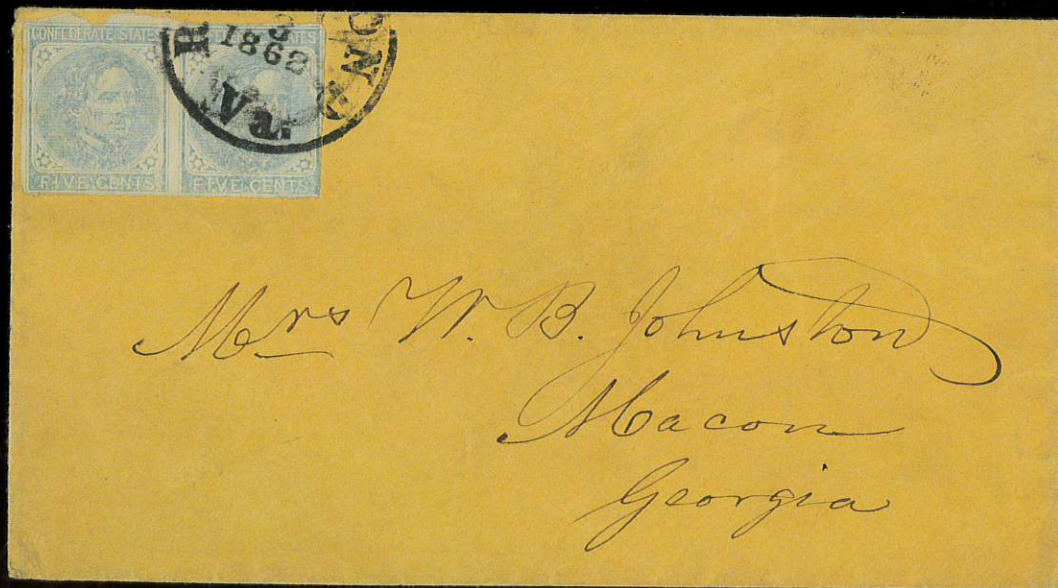 CONFEDERATE STATES
FIVE CENTS FIVE CENTS
3
1862
Va.
Mrs W. B. Johnston
Macon
Georgia